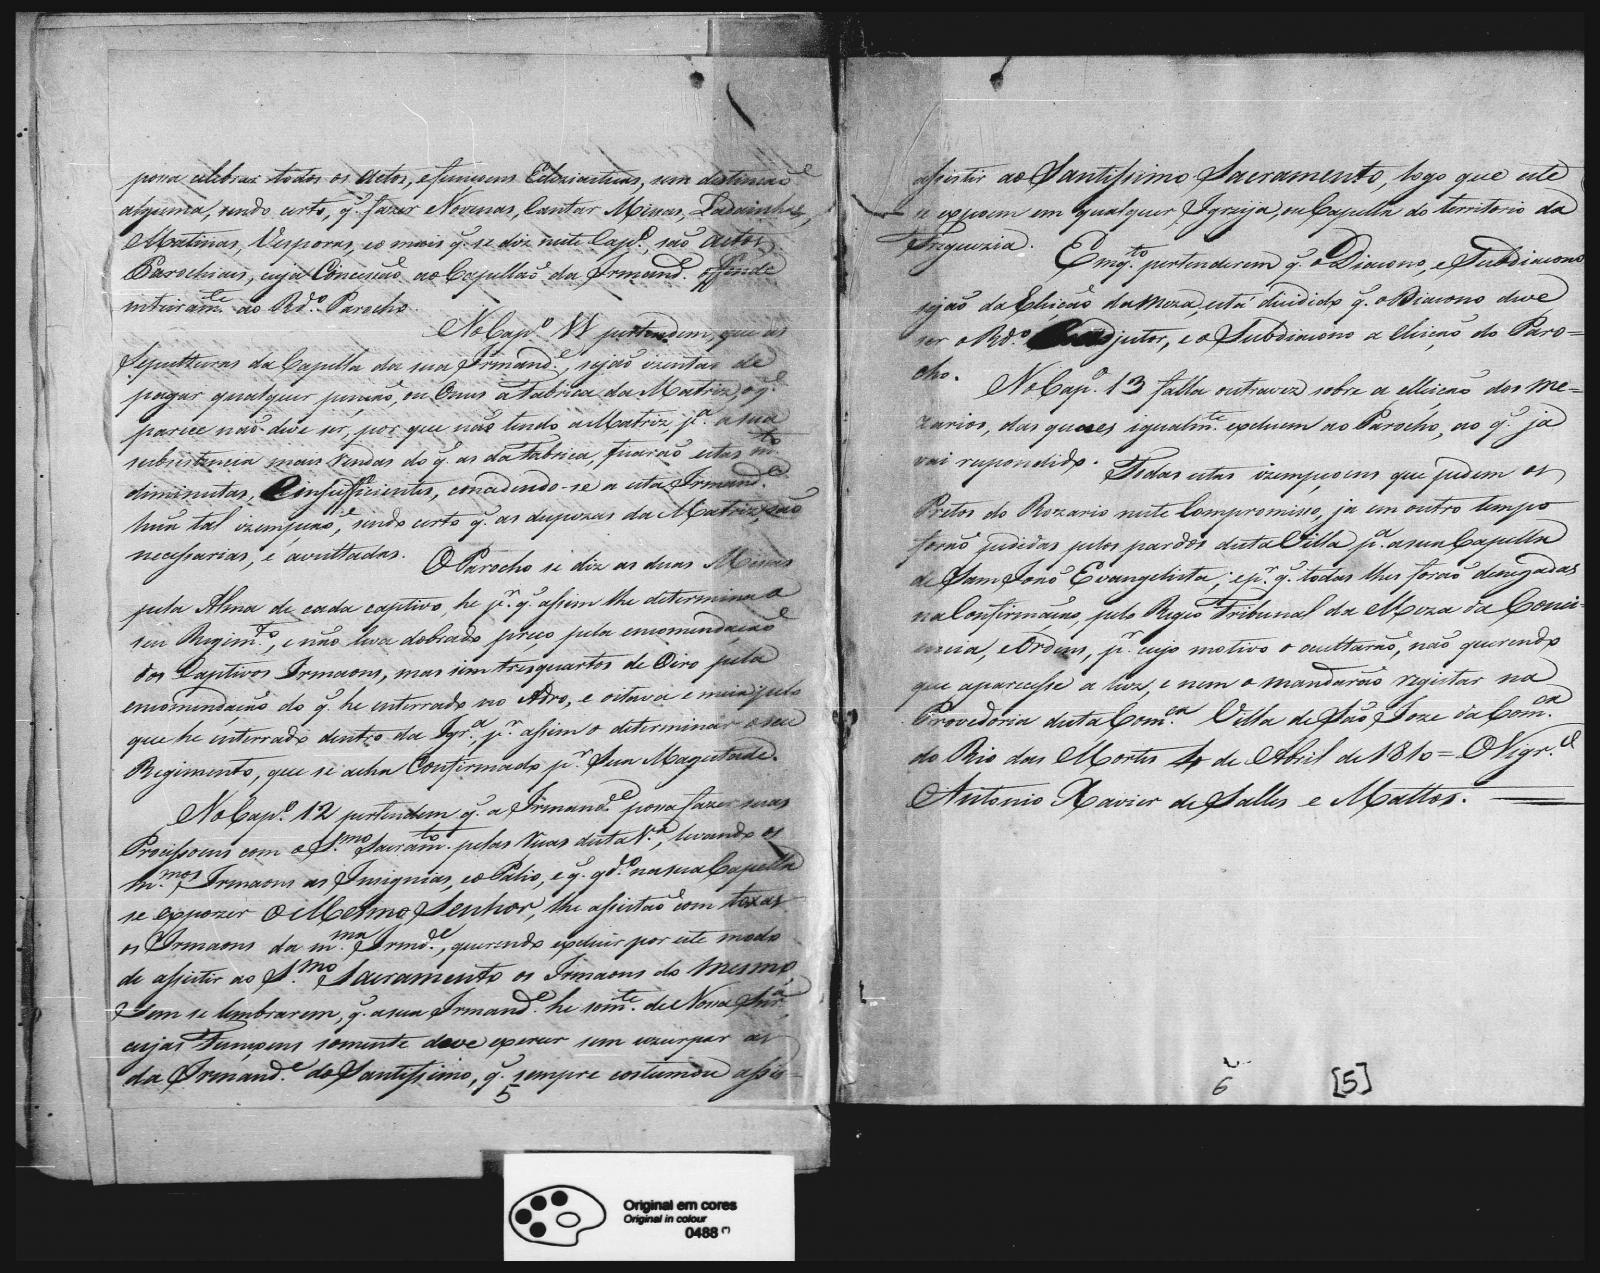 possa celebrar todos os Actos, e funçoens Eclesiasticas, sem distincaõ
alguma, sendo certo, q̃. fazer Novenas, Cantar Missas, Ladainhas,
Matinas, Vesporas, e o mais q̃. se diz neste Cap.º, saõ Actos
Parochiais, cuja Concessaõ ao Capellaõ da Irmand.e offende
inteiram.te ao Rd.º Parocho.
No Cap.º 11 pertendem, que as
Sepulturas da Capella da sua Irmand.e, sejaõ izentas de
pagar qualquer pençaõ, ou Onus a Fabrica da Matriz, o q̃.
parece naõ deve ser, por que naõ tendo a Matriz p.ª a sua
subsistencia mais rendas do q̃. as da Fabrica, ficaraõ estas m.to
diminutas, e insufficientes, concedendo-se a esta Irmand.e
huã tal izempçaõ, sendo certo q̃. as despezas da Matriz, saõ
necessarias, e avultadas. O Parocho se diz as duas Missas
pela Alma de cada captivo, he p.r q̃. assim lhe determina o
seu Regim.to, e naõ leva dobrado preço, pela encomendaçaõ
dos Captivos Irmaons, mas sim tres quartos de Oiro pela
encomendaçaõ do q̃. he enterrado no Adro, e oitava e meia pelo
que he enterrado dentro da Igr.ª, p.r assim o determinar o seu
Regimento, que se acha Confirmado p.r Sua Magestade.
No Cap.º 12 pertendem q̃. a Irmand.e possa fazer suas
Procissoens com o S.mo Sacram.to pelas Ruas desta V.ª, levando os
m.mos Irmaons as Insignias, e o Palio, e q̃. qd.º na sua Capella
se expozer O Mesmo Senhor, lhe assistaõ com toxas
os Irmaons da m.ma Irmd.e, querendo excluir por este modo
de assistir ao S.mo Sacramento os Irmaons do mesmo,
Sem se lembrarem, q̃. a sua Irmand.e he som.te de Nossa Snr.ª,
cujas Funçoens somente deve exercer sem uzurpar as
da Irmand.e do Santissimo, q̃. sempre costumou assis-
5
assistir ao Santissimo Sacramento, logo que este
se expoem em qualquer Igreja, ou Capella do territorio da
Freguezia. Emq.to pertenderem q̃. o Diacono, e Subdiacono
sejaõ da Eleiçaõ da Meza, está decidido q̃. o Diacono deve
ser o Rd.º Coadjutor, e o Subdiacono a eleiçaõ do Paro=
cho.
No Cap.º 13 falla outra vez sobre a elleiçaõ dos Me=
zarios, das quaes igualm.te excluem ao Parocho, ao q̃. já
vai respondido. Todas estas izempçoens que pedem os
Pretos do Rozario neste Compromisso, ja em outro tempo
foraõ pedidas pelos pardos desta Villa p.ª a sua Capella
de Sam Joaõ Evangelista; e p.r q̃. todas lhes foraõ denegadas
na Confirmaçaõ, pelo Regio Tribunal da Meza da Conci=
encia, e Ordens, p.r cujo motivo o ocultaraõ, naõ querendo
que aparecesse a luz, e nem o mandaraõ registar na
Provedoria desta Com.ca Villa de Saõ Joze da Com.ca
do Rio das Mortes 4 de Abril de 1810 = O Vigr.º
Antonio Xavier de Salles e Mattos.
6
[5]
Original em cores
Original in colour
0488